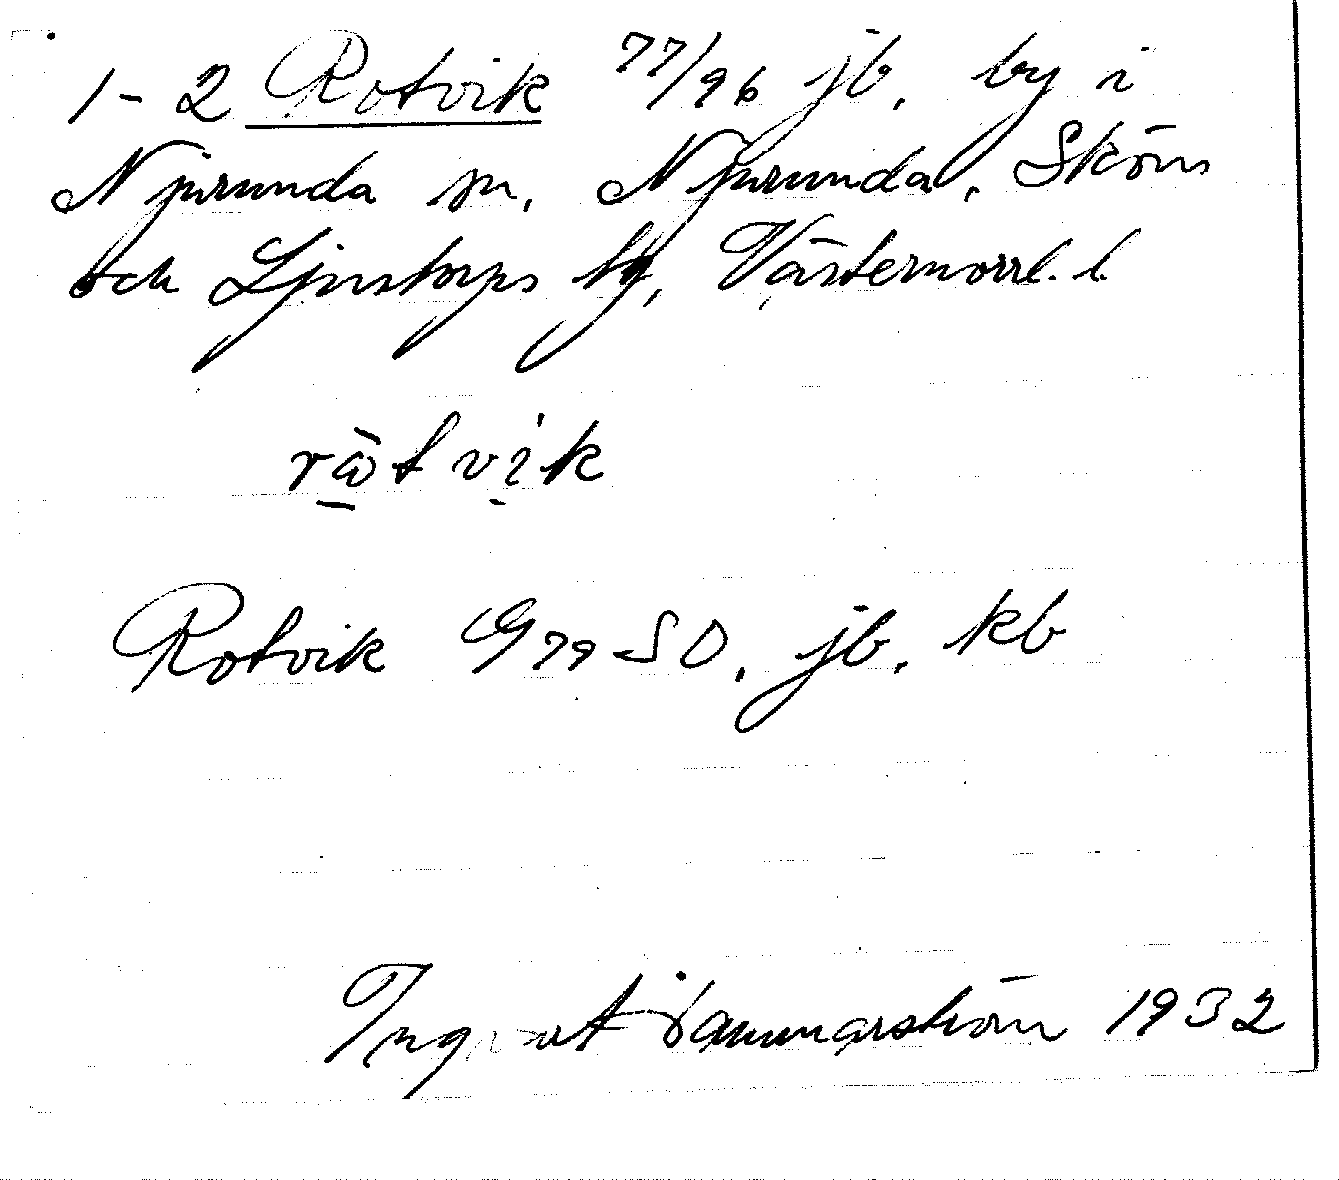 1-2 Rotvik 77/96 jb, by i
Njurunda sn, Njurunda, Sköns
och Ljustorps tg, Västernorrl. l
rɷ̀tvik
Rotvik G79 SO, jb, kb
Ingvart Hammarström 1932